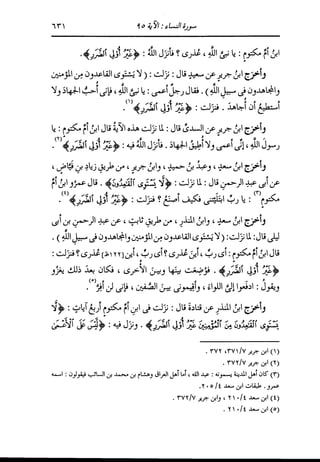 سورة النساء : الآية ٩٥
٦٣١
ابنُ أمِّ مكتومٍ : يا نبىَّ اللهِ ، عُذرى ؟ فأنزَل اللهُ : ﴿غَيْرُ أُوْلِى ٱلضَّرَرِ﴾ .
وأخرَج ابنُ جريرٍ عن سعيدٍ قال : نزَلت : (لا يَسْتَوِى القاعدون من المؤمنين
والمجاهدون فى سبيلِ اللهِ) . فقال رجلٌ أعمى : يا نبىَّ اللهِ ، فإنى أُحبُّ الجهادَ ولا
أستطيعُ أن أُجاهدَ . فنزَلت : ﴿غَيْرُ أُوْلِى ٱلضَّرَرِ﴾(١) .
وأخرَج ابنُ جريرٍ عن السدىِّ قال : لما نزَلت هذه الآيةُ قال ابنُ أمِّ مكتومٍ : يا
رسولَ اللهِ ، إنى أعمى ولا أُطيقُ الجهادَ . فأنزَل اللهُ فيه : ﴿غَيْرُ أُوْلِى ٱلضَّرَرِ﴾(٢) .
وأخرَج ابنُ سعدٍ ، وعبدُ بنُ حميدٍ ، وابنُ جريرٍ ، من طريقِ زيادِ بنِ فيَّاضٍ ،
عن أبى عبدِ الرحمنِ قال : لما نزَلت : ﴿لَّا يَسْتَوِى ٱلْقَٰعِدُونَ﴾ . قال عمرُو ابنُ أمِّ
مكتومٍ(٣) : يا ربِّ ابتَلَيتَنى فكيف أصنَعُ ؟ فنزَلت : ﴿غَيْرُ أُوْلِى ٱلضَّرَرِ﴾(٤) .
وأخرَج ابنُ سعدٍ ، وابنُ المنذرِ ، من طريقِ ثابتٍ ، عن عبدِ الرحمنِ بنِ أبى
ليلى قال : لما نزَلت : (لا يَسْتَوِى القاعدون من المؤمنين والمجاهدون فى سبيلِ اللهِ) .
قال ابنُ أمِّ مكتومٍ : أى ربِّ ، أين [١٢٢و] عُذرى ؟ أى ربِّ ، أين عُذرى ؟ فنزَلت :
﴿غَيْرُ أُوْلِى ٱلضَّرَرِ﴾ . فوُضِعت بينَها وبينَ الأخرى ، فكان بعدَ ذلك يغزُو
ويقولُ : ادفَعوا إلىَّ اللواءَ ، وأقيمونى بينَ الصفَّين ، فإنى لن أفِرَّ(٥) .
وأخرَج ابنُ المنذرِ عن قتادةَ قال : نزَلت فى ابنِ أمِّ مكتومٍ أربعُ آياتٍ : ﴿لَّا
يَسْتَوِى ٱلْقَٰعِدُونَ مِنَ ٱلْمُؤْمِنِينَ غَيْرُ أُوْلِى ٱلضَّرَرِ﴾ . ونزَل فيه : ﴿لَّيْسَ عَلَى ٱلْأَعْمَىٰ
(١) ابن جرير ٧/ ٣٧١، ٣٧٢ .
(٢) ابن جرير ٧/ ٣٧٢ .
(٣) كان أهل المدينة يسمونه : عبد الله ، أما أهل العراق وهشام بن محمد بن السائب فيقولون : اسمه
عمرو . طبقات ابن سعد ٤/ ٢٠٥ .
(٤) ابن سعد ٤/ ٢١٠ ، وابن جرير ٧/ ٣٧٢ .
(٥) ابن سعد ٤/ ٢١٠ .